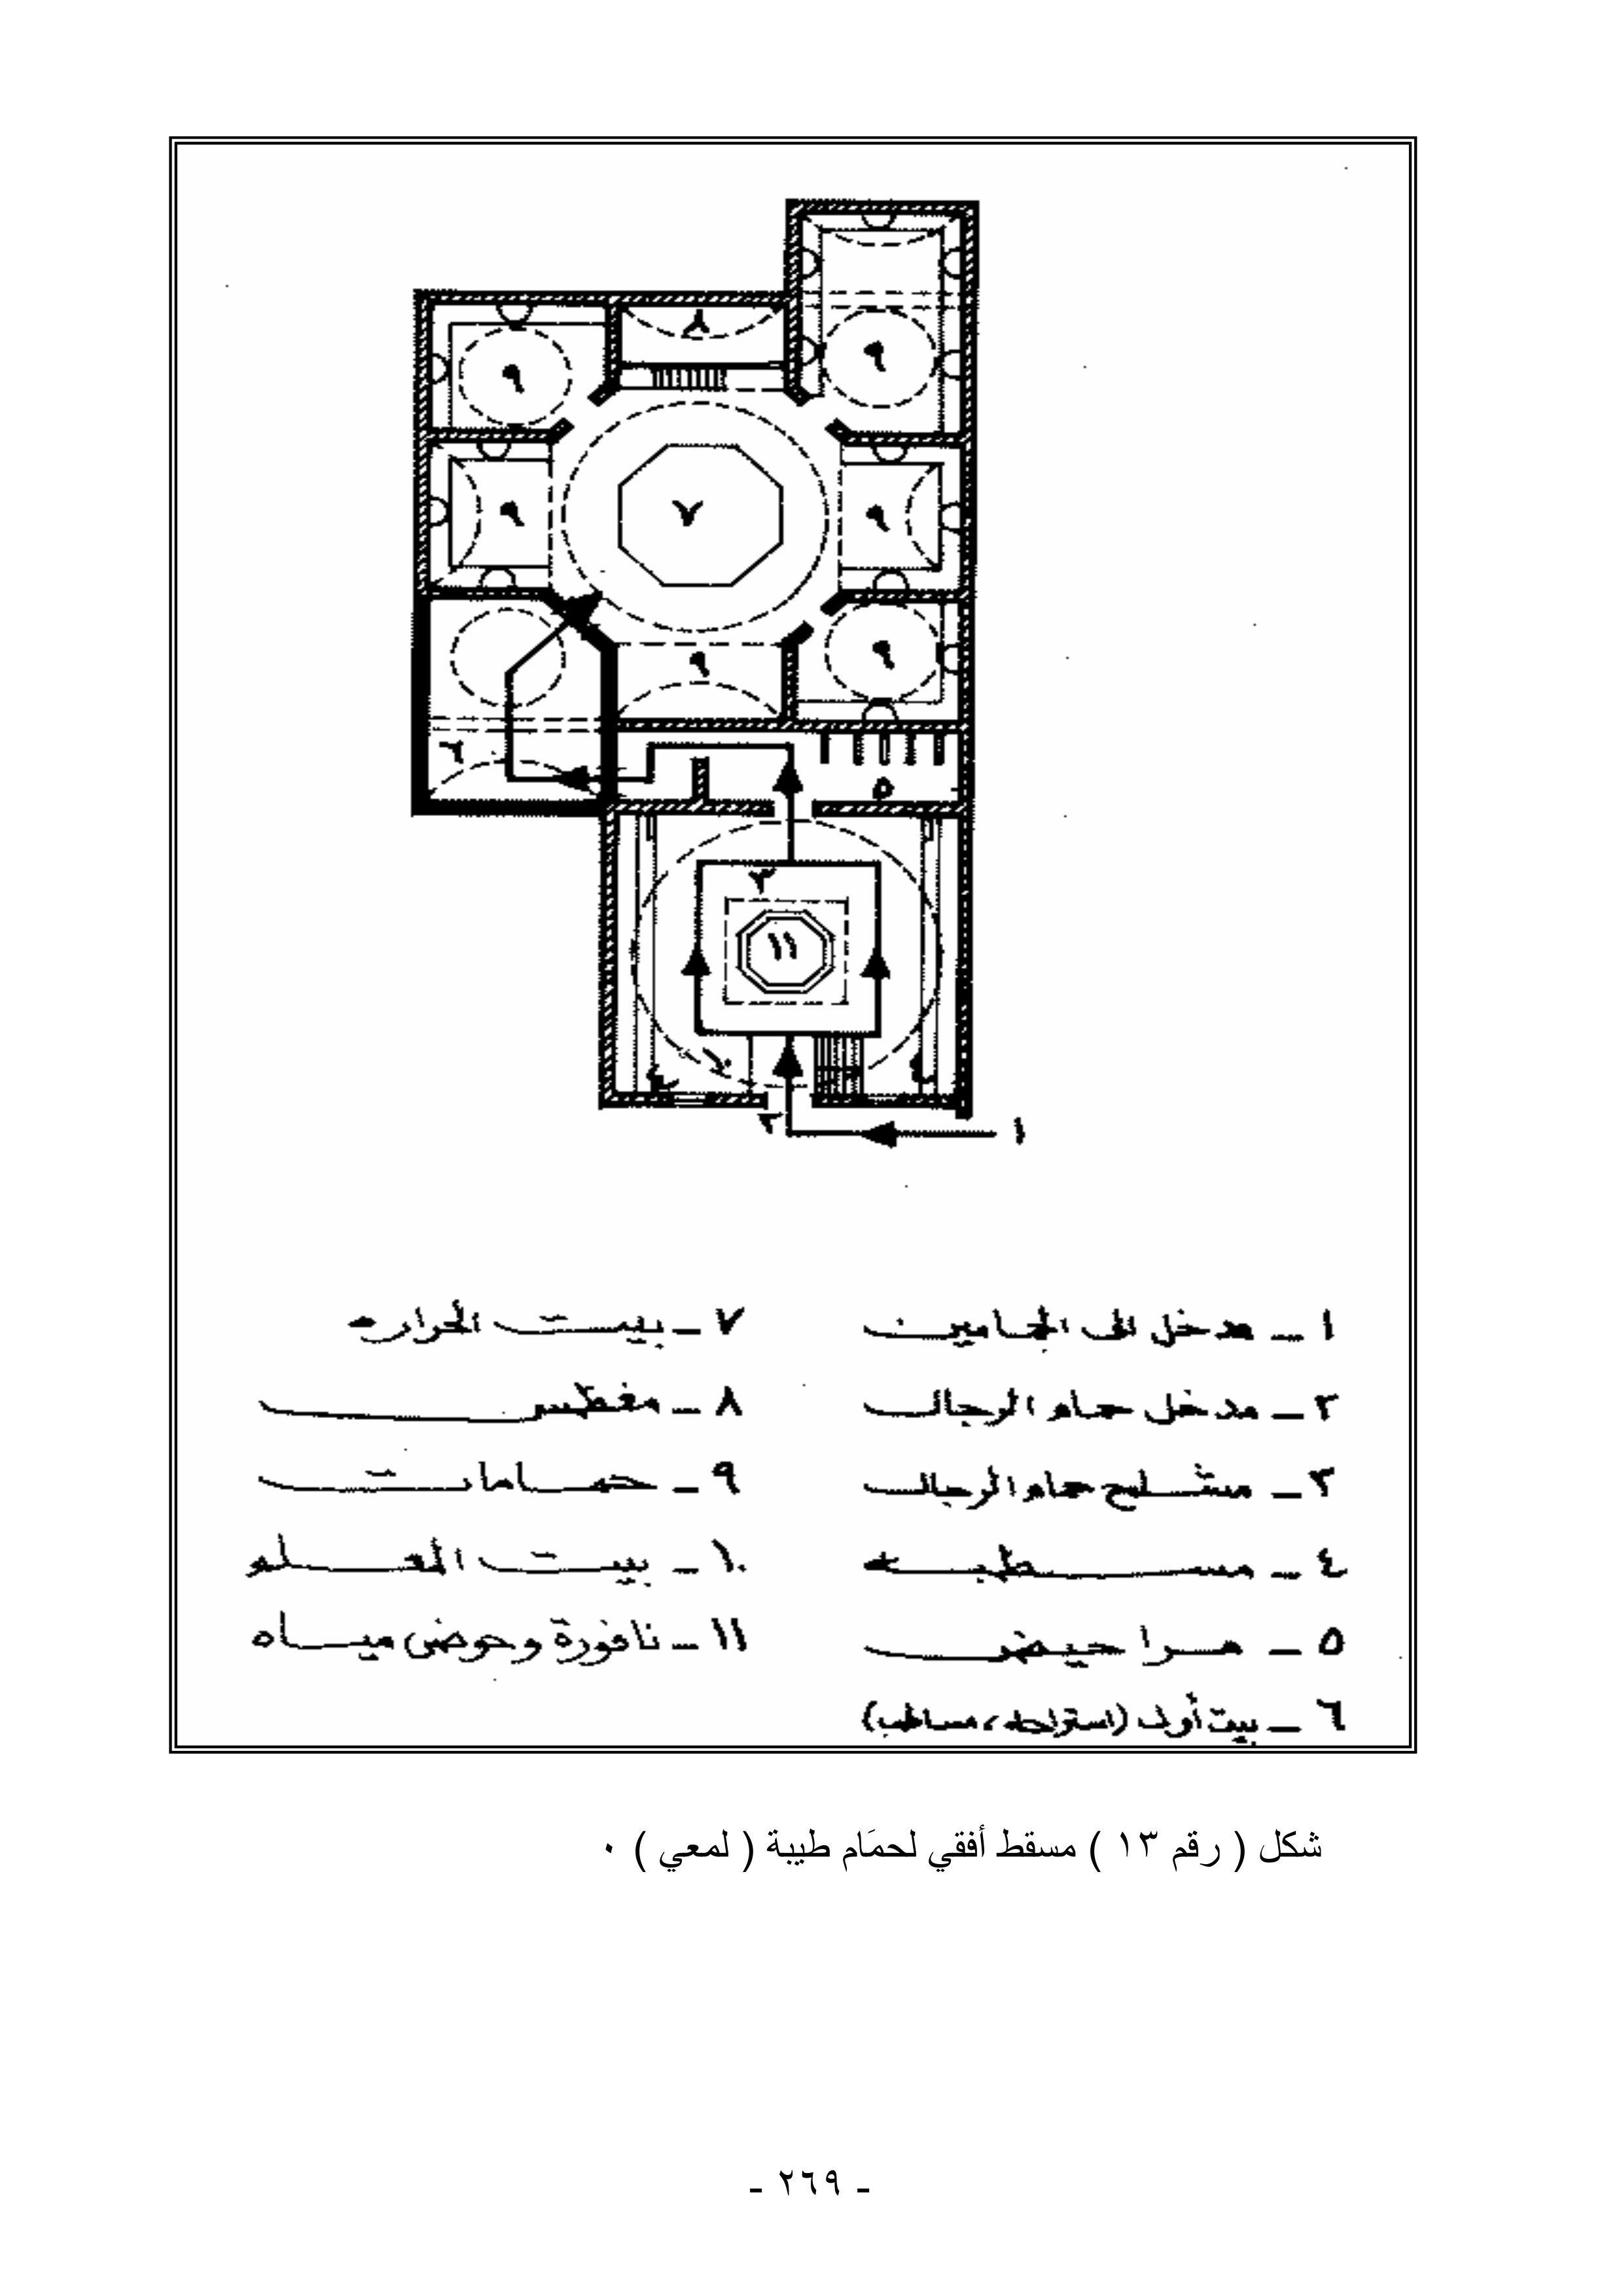 ٨
٩
٩
٩
٧
٩
٩
٩
٦
٥
٣
١١
٤
١٠
٤
٢
١
١ ــ مدخل الى الحمامين
٢ ــ مدخل حمام الرجال
٣ ــ مشلح حمام الرجال
٤ ــ مسطبه
٥ ــ مراحيض
٦ ــ بيت أول (استراحه، مساطب)
٧ ــ بيت الحراره
٨ ــ مغطس
٩ ــ حمامات
١٠ ــ بيت المعلم
١١ ــ نافورة وحوض مياه
شكل ( رقم ١٣ ) مسقط أفقي لحمَام طيبة ( لمعي ) ٠
- ٢٦٩ -